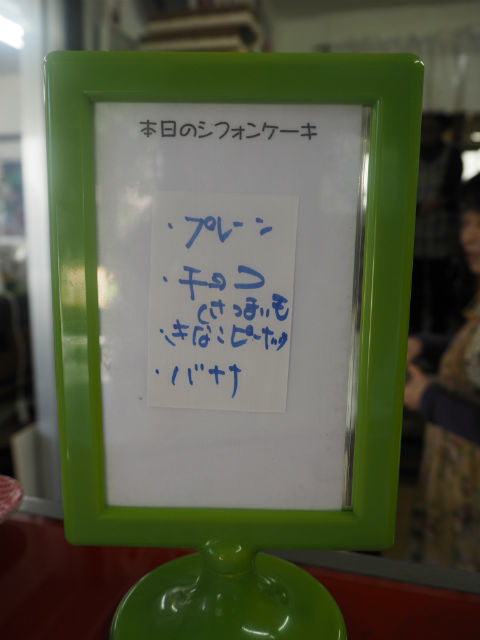 本日のシフォンケーキ
・プレーン
・チョコ
・きなこピーナッツ
・バナナ